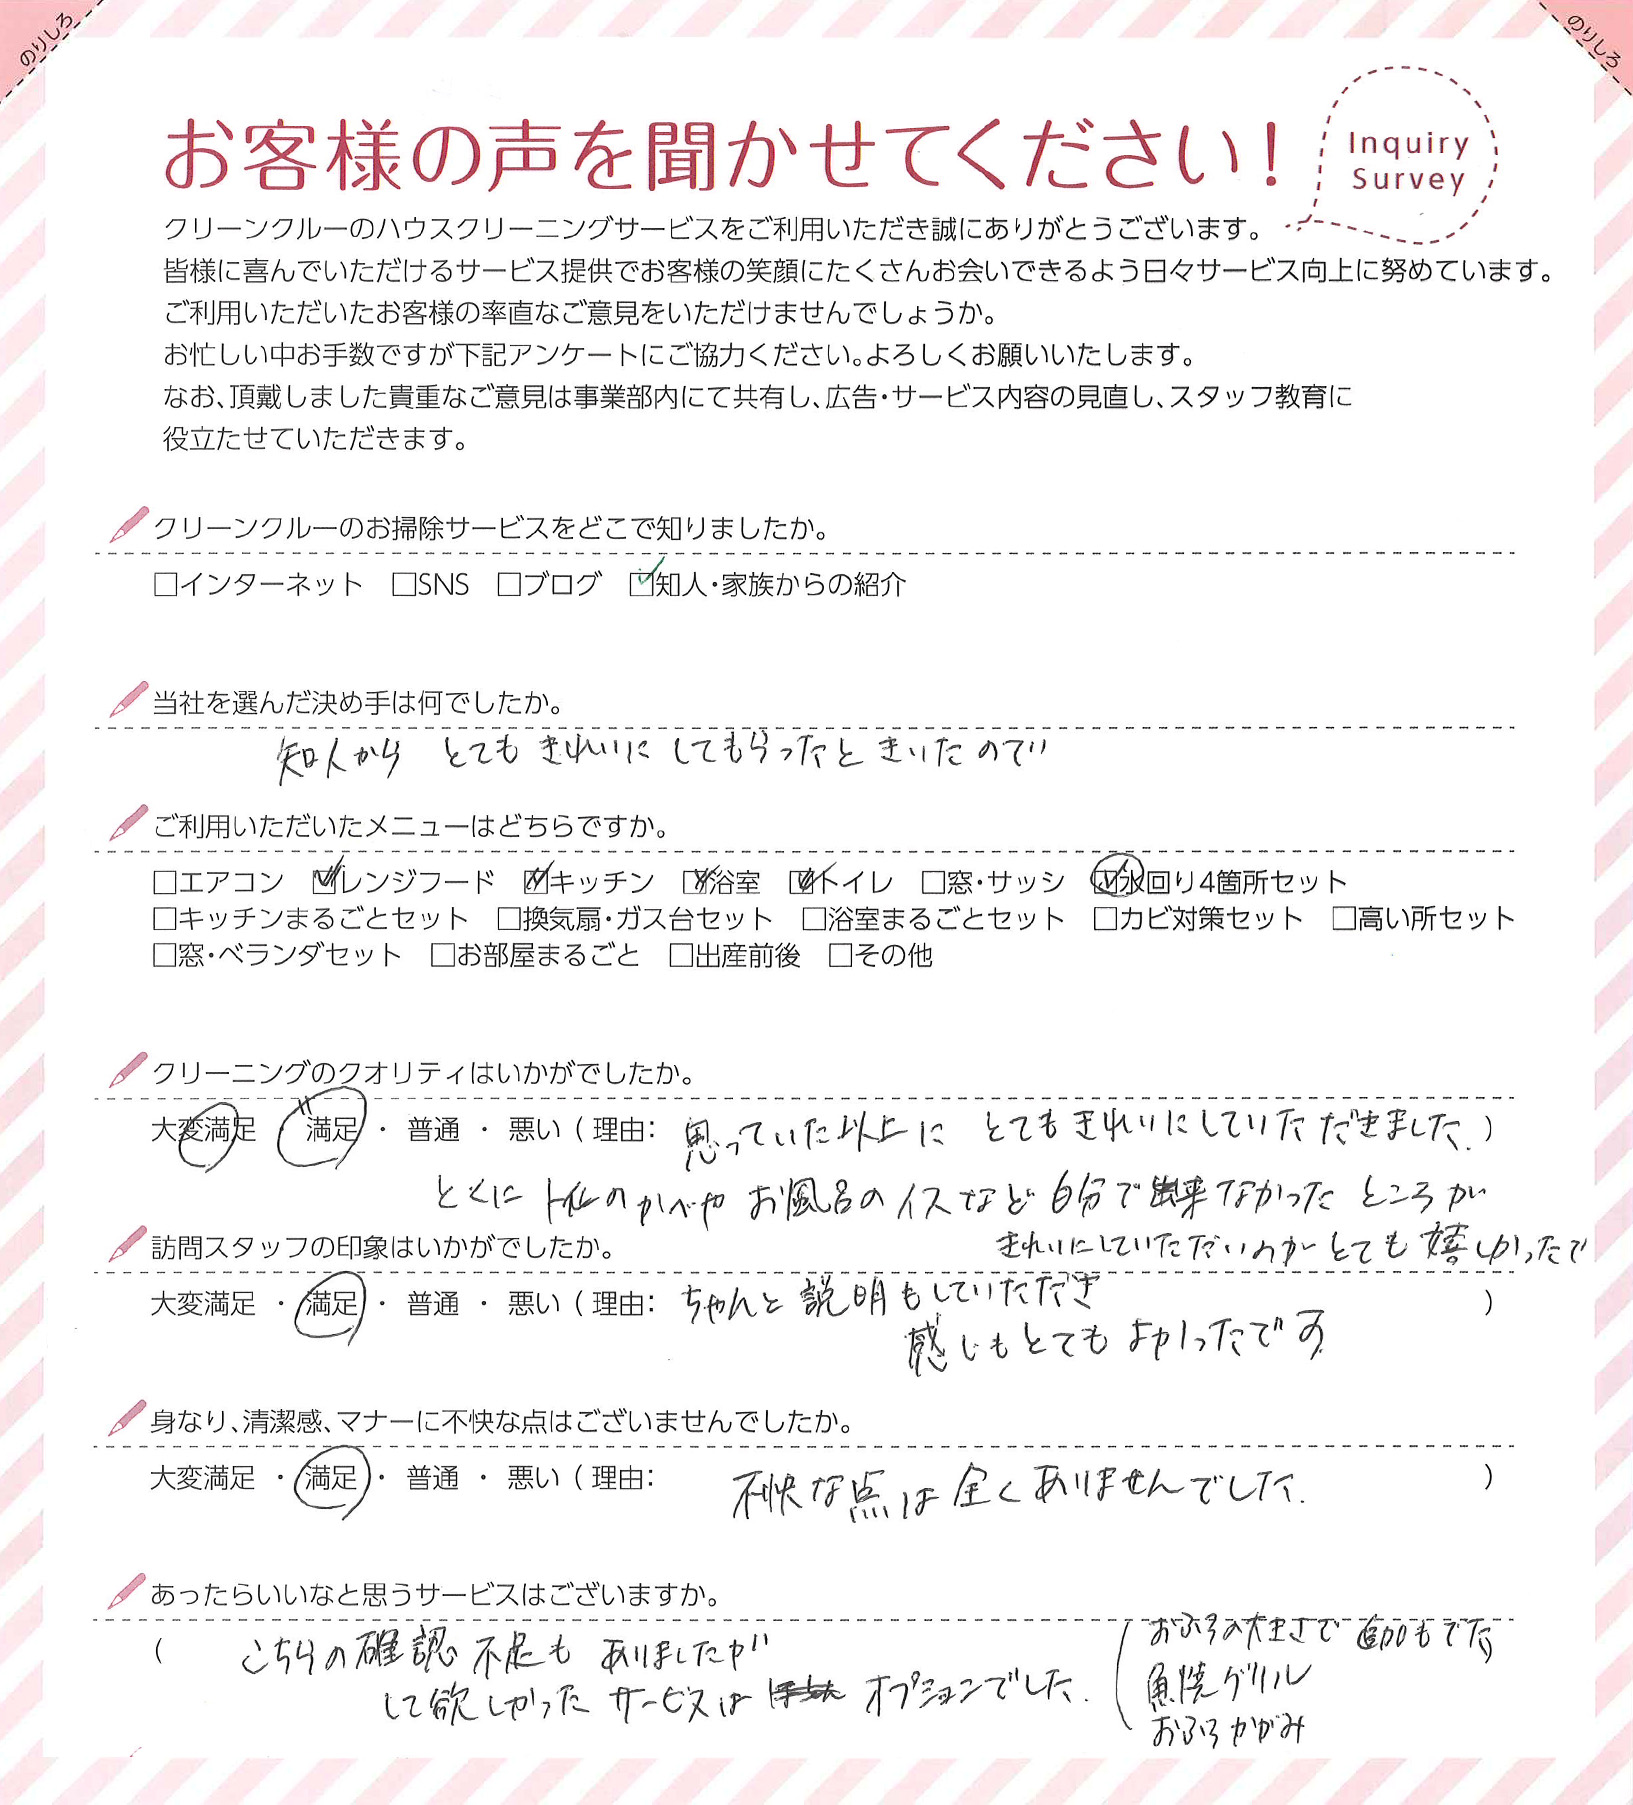 のりしろ
のりしろ
お客様の声を聞かせてください!
Inquiry
Survey
クリーンクルーのハウスクリーニングサービスをご利用いただき誠にありがとうございます。
皆様に喜んでいただけるサービス提供でお客様の笑顔にたくさんお会いできるよう日々サービス向上に努めています。
ご利用いただいたお客様の率直なご意見をいただけませんでしょうか。
お忙しい中お手数ですが下記アンケートにご協力ください。よろしくお願いいたします。
なお、頂戴しました貴重なご意見は事業部内にて共有し、広告・サービス内容の見直し、スタッフ教育に
役立たせていただきます。
クリーンクルーのお掃除サービスをどこで知りましたか。
□インターネット □SNS □ブログ ☑知人・家族からの紹介
当社を選んだ決め手は何でしたか。
知人から とても きれいに してもらったと きいたので
ご利用いただいたメニューはどちらですか。
□エアコン ☑レンジフード ☑キッチン ☑浴室 ☑トイレ □窓・サッシ ☑水回り4箇所セット
□キッチンまるごとセット □換気扇・ガス台セット □浴室まるごとセット □カビ対策セット □高い所セット
□窓・ベランダセット □お部屋まるごと □出産前後 □その他
クリーニングのクオリティはいかがでしたか。
大変満足 満足 ・ 普通 ・ 悪い ( 理由: 思っていた以上に とてもきれいにしていただきました。)
とくに トイレのかべや お風呂のイスなど 自分で出来なかった ところが
きれいにしていただいのがとても嬉しかったで
訪問スタッフの印象はいかがでしたか。
大変満足 ・ 満足 ・ 普通 ・ 悪い ( 理由: ちゃんと説明もしていただき )
感じもとてもよかったです
身なり、清潔感、マナーに不快な点はございませんでしたか。
大変満足 ・ 満足 ・ 普通 ・ 悪い ( 理由: 不快な点は全くありませんでした。 )
あったらいいなと思うサービスはございますか。
( こちらの確認不足も ありましたが
して欲しかった サービスは オプションでした。
( おふろの大きさで追加もでた
魚焼グリル
おふろかがみ